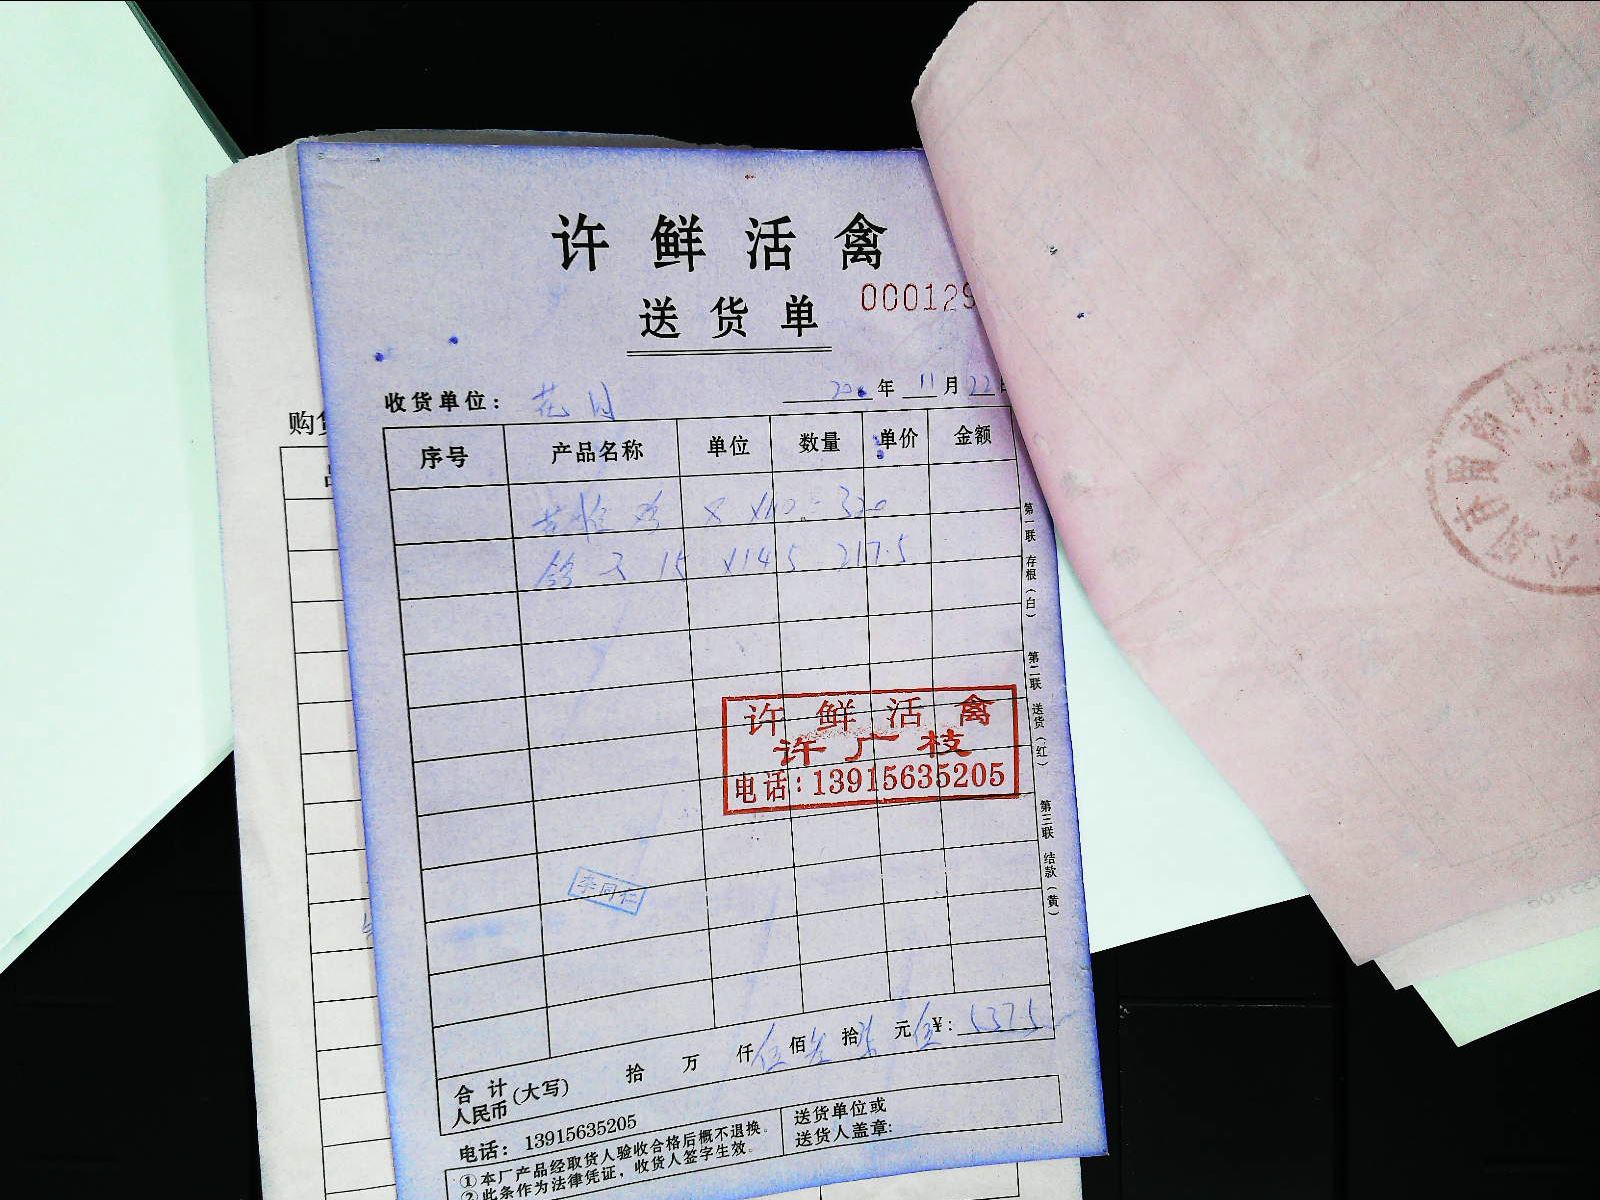 许鲜活禽
送货单
000129
收货单位: 花月
20 年 11 月 22
序号 产品名称 单位 数量 单价 金额
鸡 8 X40= 320
鸽子 15 X14.5 217.5
第一联 存根(白) 第二联 送货(红) 第三联 结款(黄)
许鲜活禽
许广枝
电话:13915635205
李同仁
合计
人民币 (大写) 拾 万 仟 伍 佰 叁 拾 柒 元 伍 ¥: 537.5
电话: 13915635205
①本厂产品经取货人验收合格后概不退换。
②此条作为法律凭证, 收货人签字生效。
送货单位或
送货人盖章:
购